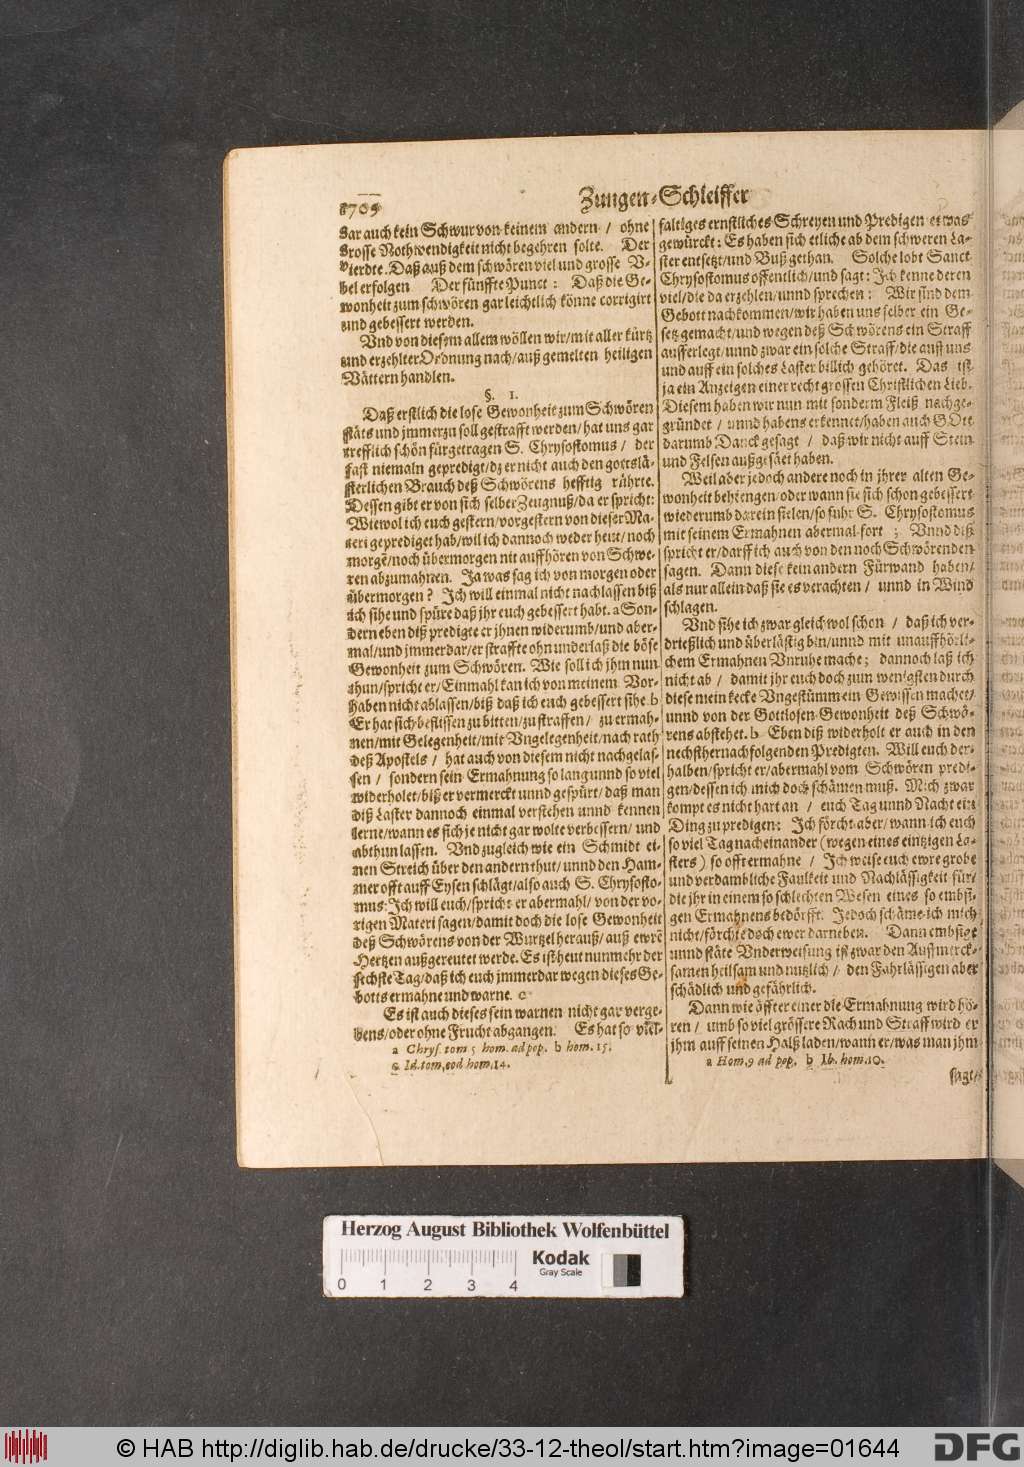 1709
Zungen-Schleiffer
gar auch kein Schwur von keinem andern / ohne
grosse Nothwendigkeit nicht begehren solte. Der
vierdte. Daß auß dem schwören viel und grosse V-
bel erfolgen Der fünffte Punct: Daß die Ge-
wonheit zum schwören gar leichtlich könne corrigirt
und gebessert werden.
Vnd von diesem allem wöllen wir/mit aller kürtz
und erzehlter Ordnung nach/auß gemelten heiligen
Vättern handlen.
§. 1.
Daß erstlich die lose Gewonheit zum Schwören
stäts und jmmerzu soll gestrafft werden/hat uns gar
trefflich schön fürgetragen S. Chrysostomus / der
fast niemaln gepredigt/dz er nicht auch den gottslä-
sterlichen Brauch deß Schwörens hefftig rührte.
Dessen gibt er von sich selber Zeugnuß/da er spricht:
Wiewol ich euch gestern/vorgestern von dieser Ma-
teri geprediget hab/wil ich dannoch weder heut/noch
morgē/noch übermorgen nit auffhören von Schwe-
ren abzumahnen. Ja was sag ich von morgen oder
übermorgen? Ich will einmal nicht nachlassen biß
ich sihe und spüre daß jhr euch gebessert habt. a Son-
dern eben diß predigte er jhnen widerumb/und aber-
mal/und jmmerdar/er straffte ohn underlaß die böse
Gewonheit zum Schwören. Wie soll ich jhm nun
thun/spricht er/Einmahl kan ich von meinem Vor-
haben nicht ablassen/biß daß ich euch gebessert sihe. b
Er hat sich beflissen zu bitten/zu straffen/ zu ermah-
nen/mit Gelegenheit/mit Vngelegenheit/nach rath
deß Apostels / hat auch von diesem nicht nachgelas-
sen / sondern sein Ermahnung so lang unnd so viel
widerholet/biß er vermerckt unnd gespürt/daß man
diß Laster dannoch einmal verstehen unnd kennen
lerne/wann es sich je nicht gar wolte verbessern/ und
abthun lassen. Vnd zugleich wie ein Schmidt ei-
nen Streich über den andern thut/ unnd den Ham-
mer offt auff Eysen schlägt/also auch S. Chrysosto-
mus: Ich will euch/spricht er abermahl/ von der vo-
rigen Materi sagen/damit doch die lose Gewonheit
deß Schwörens von der Wurtzel herauß/auß ewrē
Hertzen außgereutet werde. Es ist heut nunmehr der
sechste Tag/daß ich euch jmmerdar wegen dieses Ge-
botts ermahne und warne. c
Es ist auch dieses sein warnen nicht gar verge-
bens/oder ohne Frucht abgangen. Es hat so viel-
a Chrys. tom 5 hom. ad pop. b hom. 15.
c Id. tom, eod hom, 14.
faltiges ernstliches Schreyen und Predigen etwas
gewürckt: Es haben sich etliche ab dem schweren La-
ster entsetzt/und Buß gethan. Solche lobt Sanct
Chrysostomus offentlich/und sagt: Ich kenne deren
viel/die da erzehlen/unnd sprechen: Wir sind dem
Gebott nachkommen/wir haben uns selber ein Ge-
setz gemacht/und wegen deß Schwörens ein Straff
aufferlegt/unnd zwar ein solche Straff/die auff uns
und auff ein solches Laster billich gehöret. Das ist
ja ein Anzeigen einer recht grossen Christlichen Lieb.
Diesem haben wir nun mit sonderm Fleiß nachge-
gründet / unnd habens erkennet/haben auch GOtt
darumb Danck gesagt / daß wir nicht auff Stein
und Felsen außgesäet haben.
Weil aber jedoch andere noch in jhrer alten Ge-
wonheit behiengen/oder wann sie sich schon gebessert
wiederumb darein fielen/so fuhr S. Chrysostomus
mit seinem Ermahnen abermal fort ; Vnnd diß
spricht er/darff ich auch von den noch Schwörenden
sagen. Dann diese kein andern Fürwand haben/
als nur allein daß sie es verachten / unnd in Wind
schlagen.
Vnd sihe ich zwar gleichwol schon / daß ich ver-
drießlich und überlästig bin/unnd mit unauffhörli-
chem Ermahnen Vnruhe mache; dannoch laß ich
nicht ab / damit jhr euch doch zum wenigsten durch
diese mein kecke Vngestümm ein Gewissen machet/
unnd von der Gottlosen Gewonheit deß Schwö-
rens abstehet. b Eben diß widerholt er auch in den
nechsthernachfolgenden Predigten. Will euch der-
halben/spricht er/abermahl vom Schwören predi-
gen/dessen ich mich doch schämen muß. Mich zwar
kompt es nicht hart an / euch Tag unnd Nacht ein
Ding zu predigen: Ich förcht aber/wann ich euch
so viel Tag nacheinander (wegen eines eintzigen La-
sters) so offt ermahne / Ich weise euch ewre grobe
und verdambliche Faulkeit und Nachlässigkeit für/
die jhr in einem so schlechten Wesen eines so embsi-
gen Ermahnens bedörfft. Jedoch schäme ich mich
nicht/förchte doch ewer darneben. Dann embsige
unnd stäte Vnderweisung ist zwar den Auffmerck-
samen heilsam und nutzlich / den Fahrlässigen aber
schädlich und gefährlich.
Dann wie öffter einer die Ermahnung wird hö-
ren / umb so viel grössere Rach und Straff wird er
jhm auff seinen Halß laden/wann er/was man jhm
a Hom, 9 ad pop. b Ib. hom. 10.
sagt/
Herzog August Bibliothek Wolfenbüttel
Kodak
Gray Scale
0 1 2 3 4
© HAB http://diglib.hab.de/drucke/33-12-theol/start.htm?image=01644
DFG